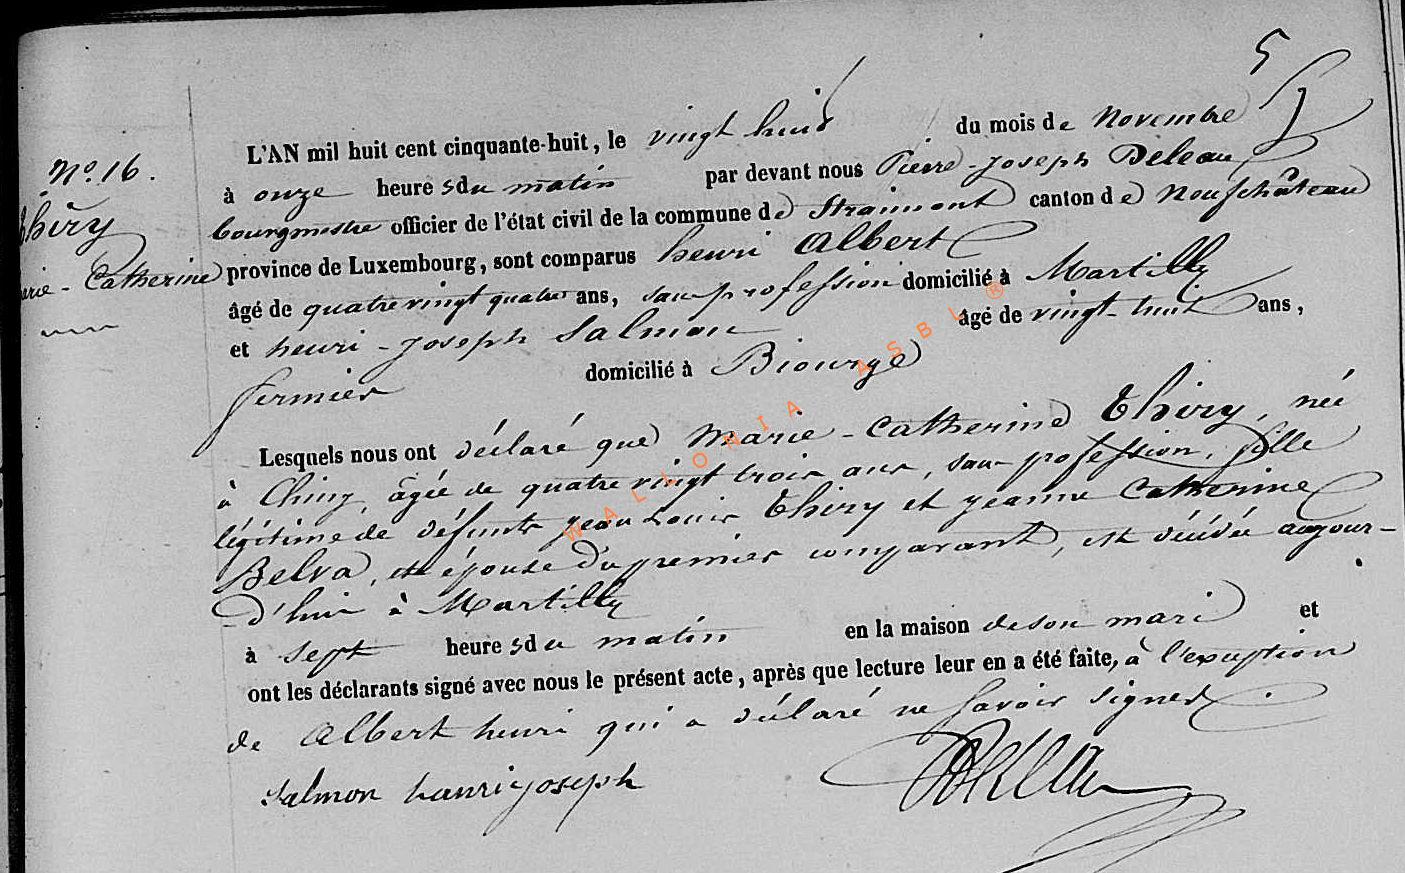 5
L'AN mil huit cent cinquante-huit, le vingt huit du mois de Novembre
N.o 16.
à onze heures du matin par devant nous Pierre-Joseph Deleau
Thiry
bourgmestre officier de l'état civil de la commune de Straimont canton de Neufchâteau
Marie-Catherine
province de Luxembourg, sont comparus henri Albert
âgé de quatrevingt quatre ans, sans profession domicilié à Martilly
et henri-Joseph Salmon âgé de vingt-huit ans,
fermier domicilié à Biourge
Lesquels nous ont déclaré que Marie-Catherine Thiry, née
à Chiny, âgée de quatre vingt trois ans, sans profession, fille
légitime de défunts Jean Louis Thiry et Jeanne Catherine
Belva, et épouse du premier comparant, est décédée aujour-
d'hui à Martilly
à sept heures du matin en la maison de son mari et
ont les déclarants signé avec nous le présent acte, après que lecture leur en a été faite, à l'exception
de Albert henri qui a déclaré ne savoir signer
Salmon henri joseph
WALLONIA ASBL ®